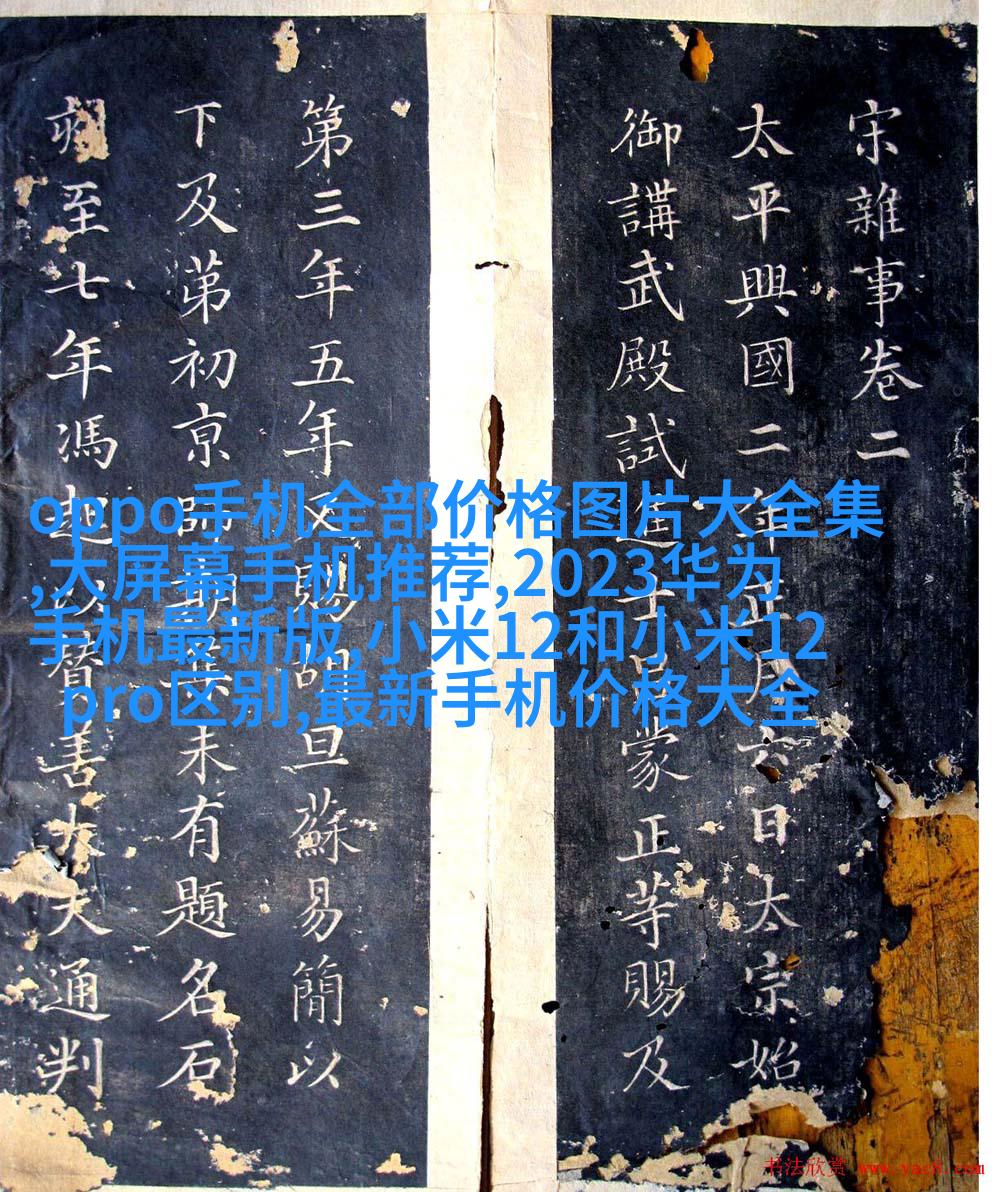 宋雜事卷二
太平興國二年正月六日太宗始
御講武殿試進士呂蒙正等賜及
第三年五年又賜胡旦蘇易簡以
下及苐初京師未有題名石
刻至七年馮起以替善大夫通判
oppo手机全部价格图片大全集
,大屏幕手机推荐,2023华为
手机最新版,小米12和小米12
pro区别,最新手机价格大全
书法欣赏 www.yac8.com